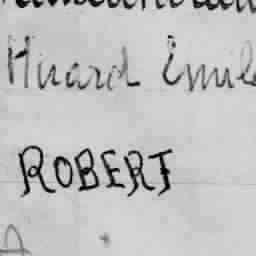 Huard Emile
ROBERT